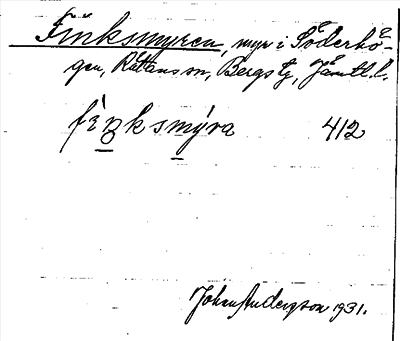 Finksmyren, myr i Söderhö-
gen, Rättans sn, Bergs tg, Jämtl. l.
fi̇ŋksmýra 412
Johan Anderson 1931.